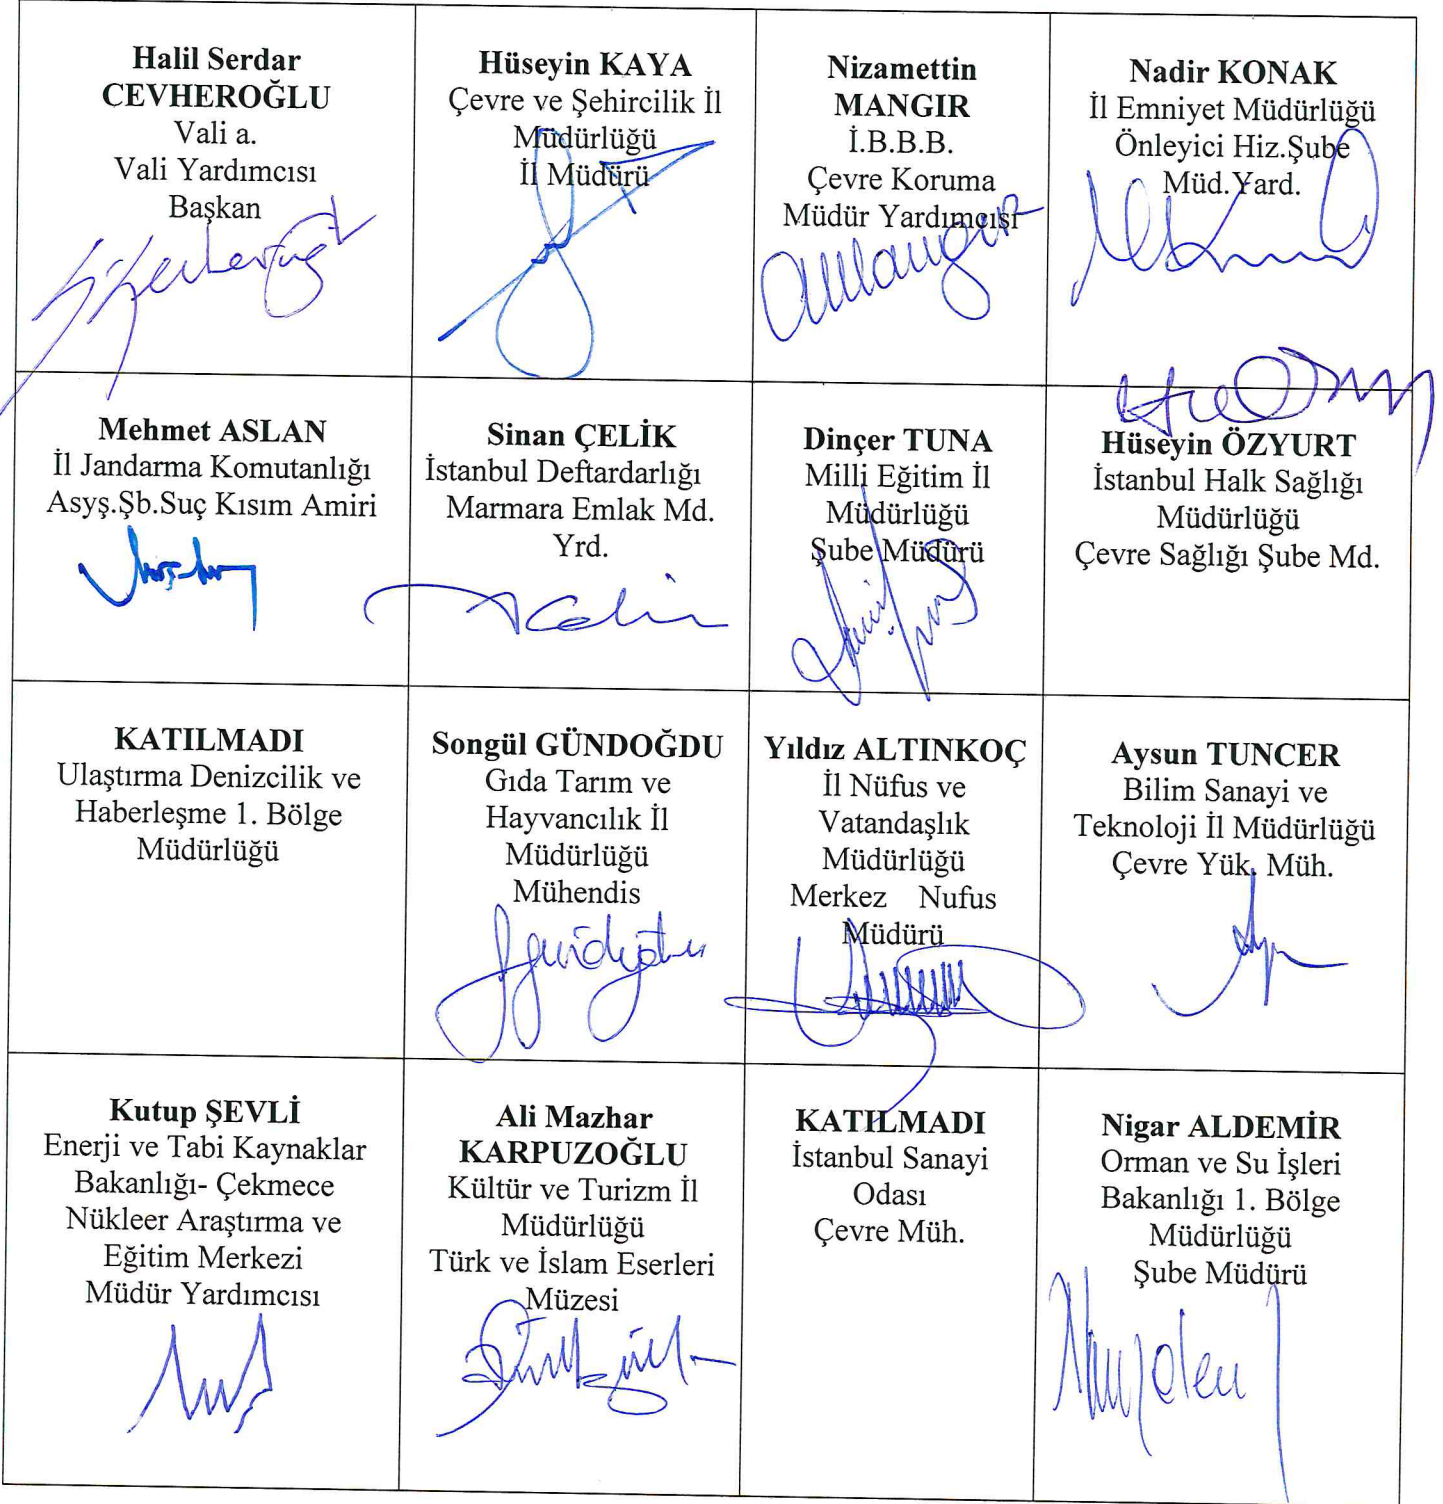 Halil Serdar
CEVHEROĞLU
Vali a.
Vali Yardımcısı
Başkan
Hüseyin KAYA
Çevre ve Şehircilik İl
Müdürlüğü
İl Müdürü
Nizamettin
MANGIR
İ.B.B.B.
Çevre Koruma
Müdür Yardımcısı
Nadir KONAK
İl Emniyet Müdürlüğü
Önleyici Hiz.Şube
Müd.Yard.
Mehmet ASLAN
İl Jandarma Komutanlığı
Asyş.Şb.Suç Kısım Amiri
Sinan ÇELİK
İstanbul Deftardarlığı
Marmara Emlak Md.
Yrd.
Dinçer TUNA
Milli Eğitim İl
Müdürlüğü
Şube Müdürü
Hüseyin ÖZYURT
İstanbul Halk Sağlığı
Müdürlüğü
Çevre Sağlığı Şube Md.
KATILMADI
Ulaştırma Denizcilik ve
Haberleşme 1. Bölge
Müdürlüğü
Songül GÜNDOĞDU
Gıda Tarım ve
Hayvancılık İl
Müdürlüğü
Mühendis
Yıldız ALTINKOÇ
İl Nüfus ve
Vatandaşlık
Müdürlüğü
Merkez Nufus
Müdürü
Aysun TUNCER
Bilim Sanayi ve
Teknoloji İl Müdürlüğü
Çevre Yük. Müh.
Kutup ŞEVLİ
Enerji ve Tabi Kaynaklar
Bakanlığı- Çekmece
Nükleer Araştırma ve
Eğitim Merkezi
Müdür Yardımcısı
Ali Mazhar
KARPUZOĞLU
Kültür ve Turizm İl
Müdürlüğü
Türk ve İslam Eserleri
Müzesi
KATILMADI
İstanbul Sanayi
Odası
Çevre Müh.
Nigar ALDEMİR
Orman ve Su İşleri
Bakanlığı 1. Bölge
Müdürlüğü
Şube Müdürü